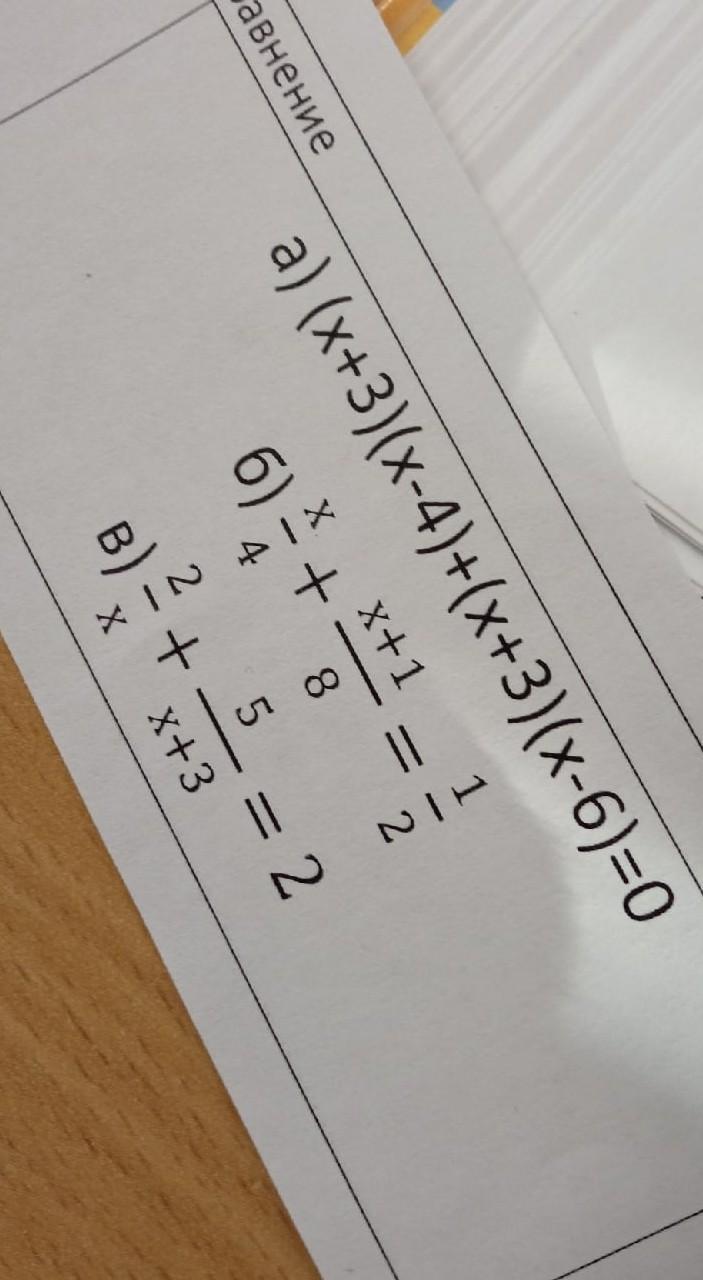 авнение
а) (x+3)(x-4)+(x+3)(x-6)=0
б) x/4 + (x+1)/8 = 1/2
в) 2/x + 5/(x+3) = 2